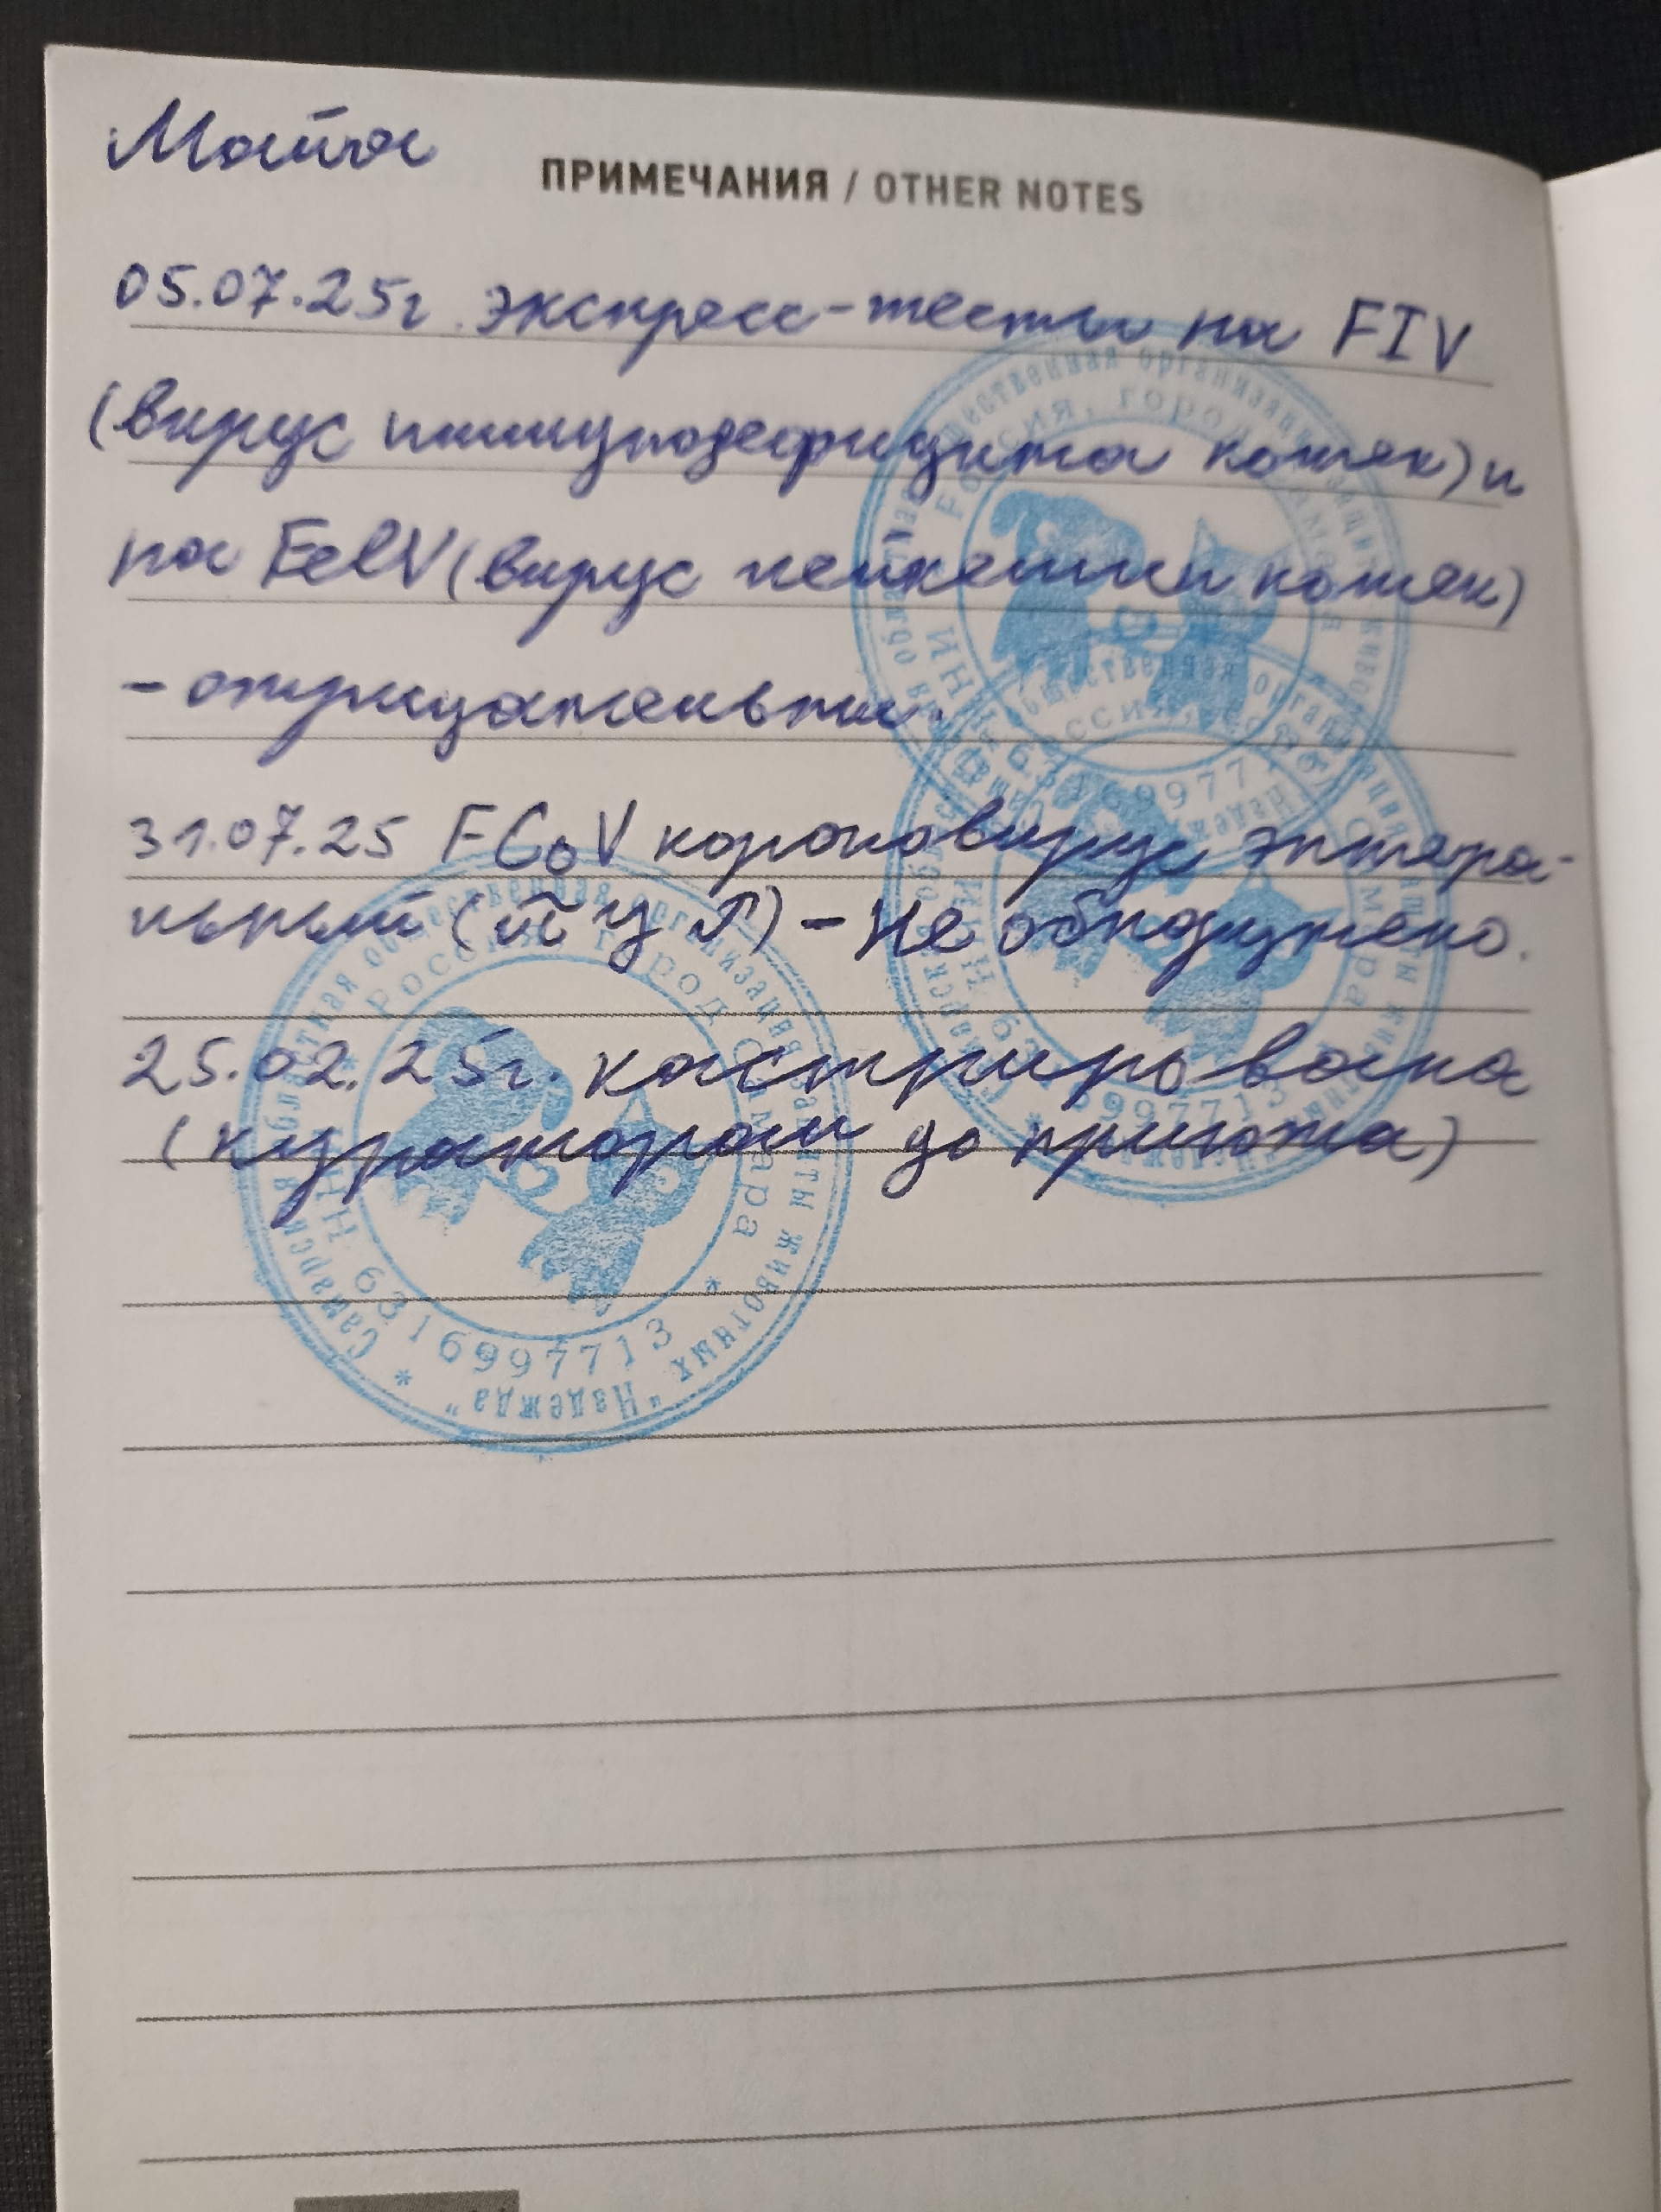 Майя
ПРИМЕЧАНИЯ / OTHER NOTES
05.07.25г. экспресс-тесты на FIV
(вирус иммунодефицита кошек) и
на FelV (вирус лейкемии кошек)
- отрицательны.
31.07.25 FCoV короновирус энтера-
льный (ПЦР) - Не обнаружено.
25.02.25г. кастрирована
(куратором до приюта)
Самарская областная общественная организация защиты животных "Надежда"
Россия, город Самара
ИНН 6316997713
Самарская областная общественная организация защиты животных "Надежда"
Россия, город Самара
ИНН 6316997713
Самарская областная общественная организация защиты животных "Надежда"
Россия, город Самара
ИНН 6316997713